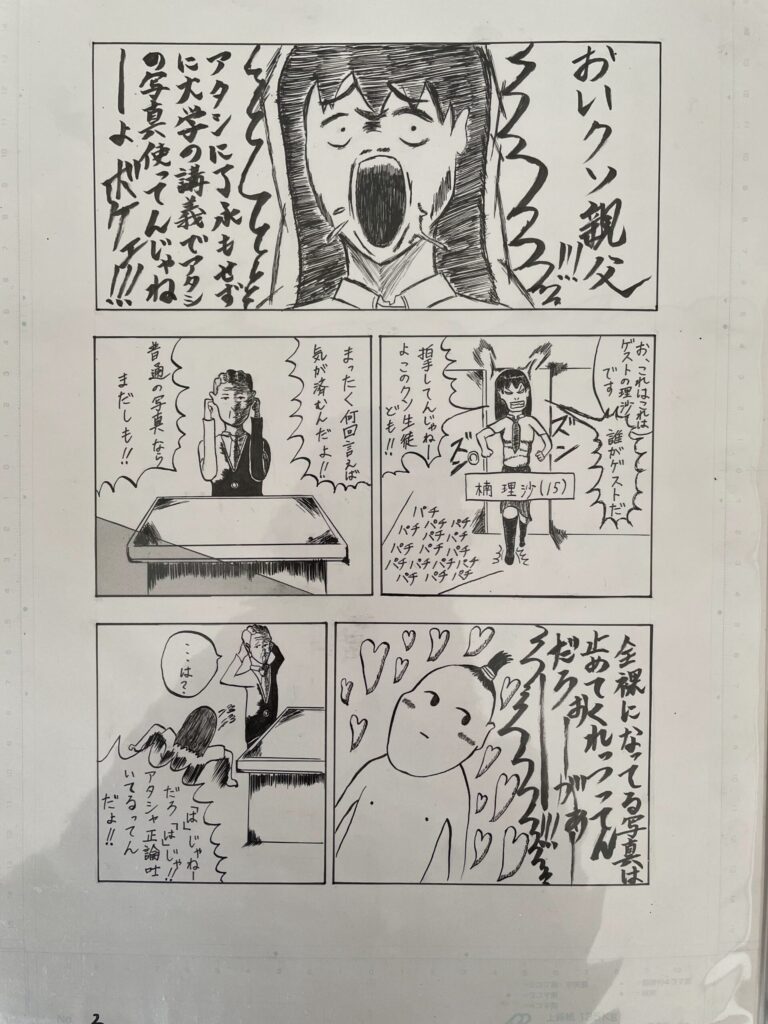 おいクソ親父
!!!
アタシに了承もせず
に大学の講義でアタシ
の写真使ってんじゃね
ーよ ボケェ!!!
お、これはこれは
ゲストの理沙
です
誰がゲストだ
拍手してんじゃねー
よこのクソ生徒
ども!!
ズン
ズン
楠 理沙(15)
パチ
パチ パチ パチ
パチ パチ パチ
パチ パチ パチ パチ
パチ パチ パチ
まったく何回言えば
気が済むんだよ!!
普通の写真なら
まだしも!!
全裸になってる写真は
止めてくれっつってん
だろーがぁ
!!!
・・は?
「は」じゃねー
だろ「は」じゃ!!
アタシャ正論吐
いてるってん
だよ!!
2